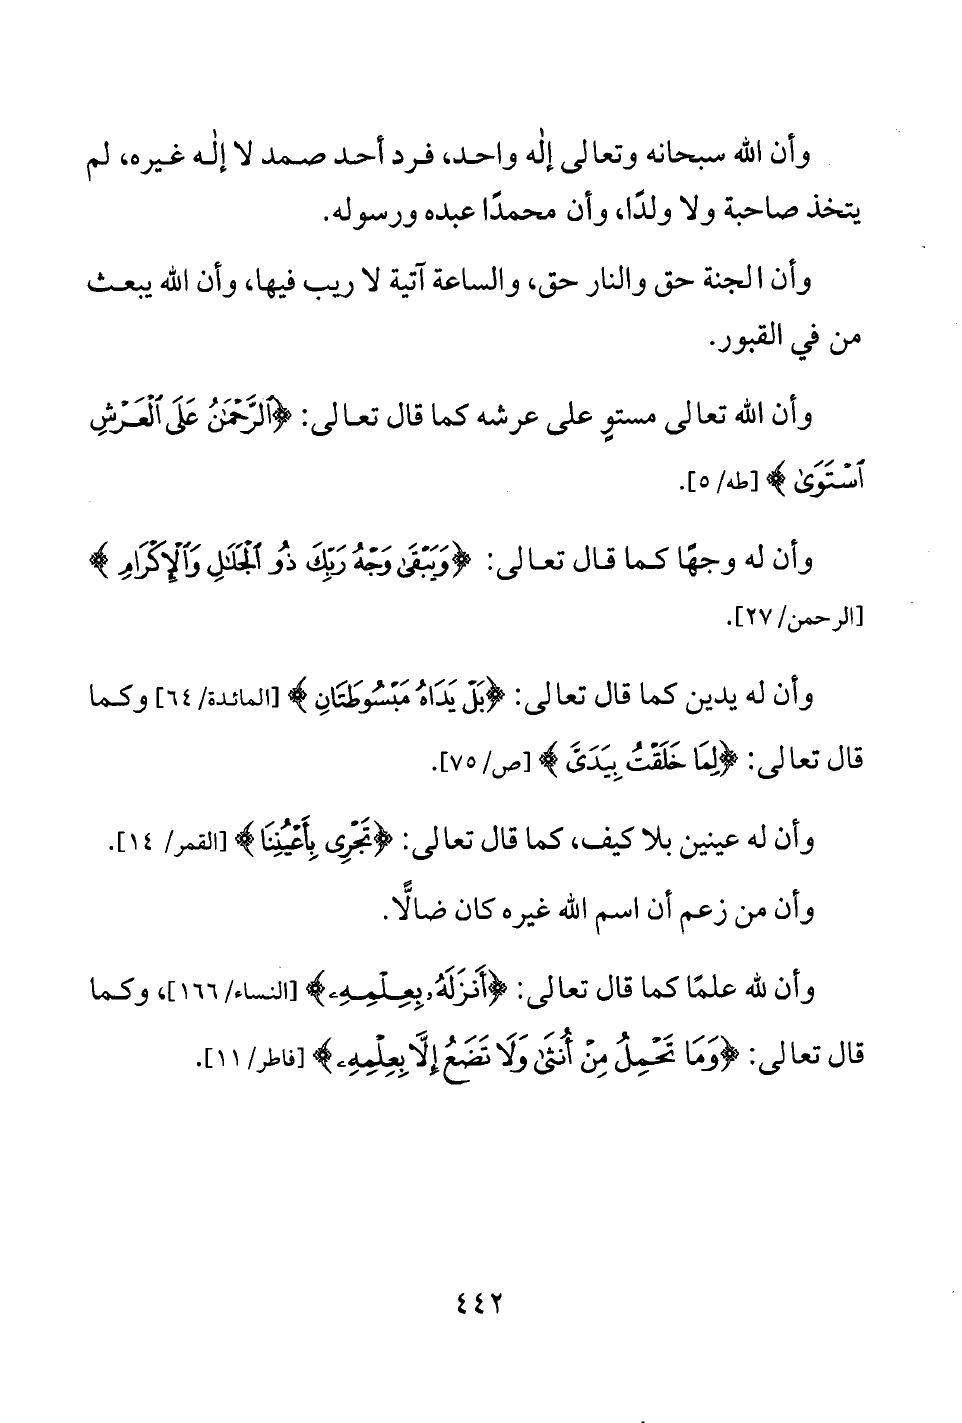 وأن الله سبحانه وتعالى إلٰه واحد، فرد أحد صمد لا إلٰه غيره، لم
يتخذ صاحبة ولا ولدًا، وأن محمدًا عبده ورسوله.
وأن الجنة حق والنار حق، والساعة آتية لا ريب فيها، وأن الله يبعث
من في القبور.
وأن الله تعالى مستوٍ على عرشه كما قال تعالى: ﴿ٱلرَّحْمَٰنُ عَلَى ٱلْعَرْشِ
ٱسْتَوَىٰ﴾ [طه/ ٥].
وأن له وجهًا كما قال تعالى: ﴿وَيَبْقَىٰ وَجْهُ رَبِّكَ ذُو ٱلْجَلَٰلِ وَٱلْإِكْرَامِ﴾
[الرحمن/ ٢٧].
وأن له يدين كما قال تعالى: ﴿بَلْ يَدَاهُ مَبْسُوطَتَانِ﴾ [المائدة/ ٦٤] وكما
قال تعالى: ﴿لِمَا خَلَقْتُ بِيَدَىَّ﴾ [ص/ ٧٥].
وأن له عينين بلا كيف، كما قال تعالى: ﴿تَجْرِى بِأَعْيُنِنَا﴾ [القمر/ ١٤].
وأن من زعم أن اسم الله غيره كان ضالًّا.
وأن لله علمًا كما قال تعالى: ﴿أَنزَلَهُۥ بِعِلْمِهِۦ﴾ [النساء/ ١٦٦]، وكما
قال تعالى: ﴿وَمَا تَحْمِلُ مِنْ أُنثَىٰ وَلَا تَضَعُ إِلَّا بِعِلْمِهِۦ﴾ [فاطر/ ١١].
٤٤٢